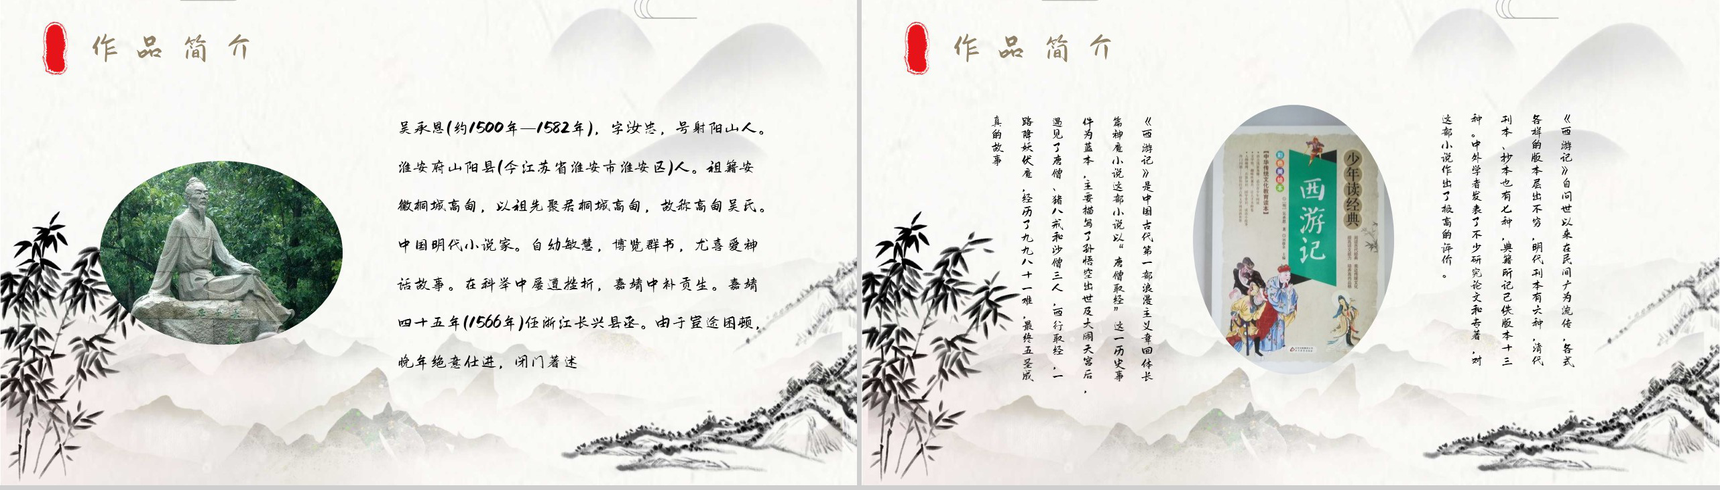 作品简介
吴承恩(约1500年—1582年)，字汝忠，号射阳山人。
淮安府山阳县(今江苏省淮安市淮安区)人。祖籍安
徽桐城高甸，以祖先聚居桐城高甸，故称高甸吴氏。
中国明代小说家。自幼敏慧，博览群书，尤喜爱神
话故事。在科举中屡遭挫折，嘉靖中补贡生。嘉靖
四十五年(1566年)任浙江长兴县丞。由于宦途困顿，
晚年绝意仕进，闭门著述
作品简介
《西游记》自问世以来在民间广为流传，各式
各样的版本层出不穷，明代刊本有六种，清代
刊本、抄本也有七种，典籍所记已佚版本十三
种。中外学者发表了不少研究论文和专著，对
这部小说作出了极高的评价。
少年读经典
西游记
《西游记》是中国古代第一部浪漫主义章回体长
篇神魔小说这部小说以“唐僧取经”这一历史事
件为蓝本，主要描写了孙悟空出世及大闹天宫后，
遇见了唐僧、猪八戒和沙僧三人，西行取经，一
路降妖伏魔，经历了九九八十一难，最终五圣成
真的故事